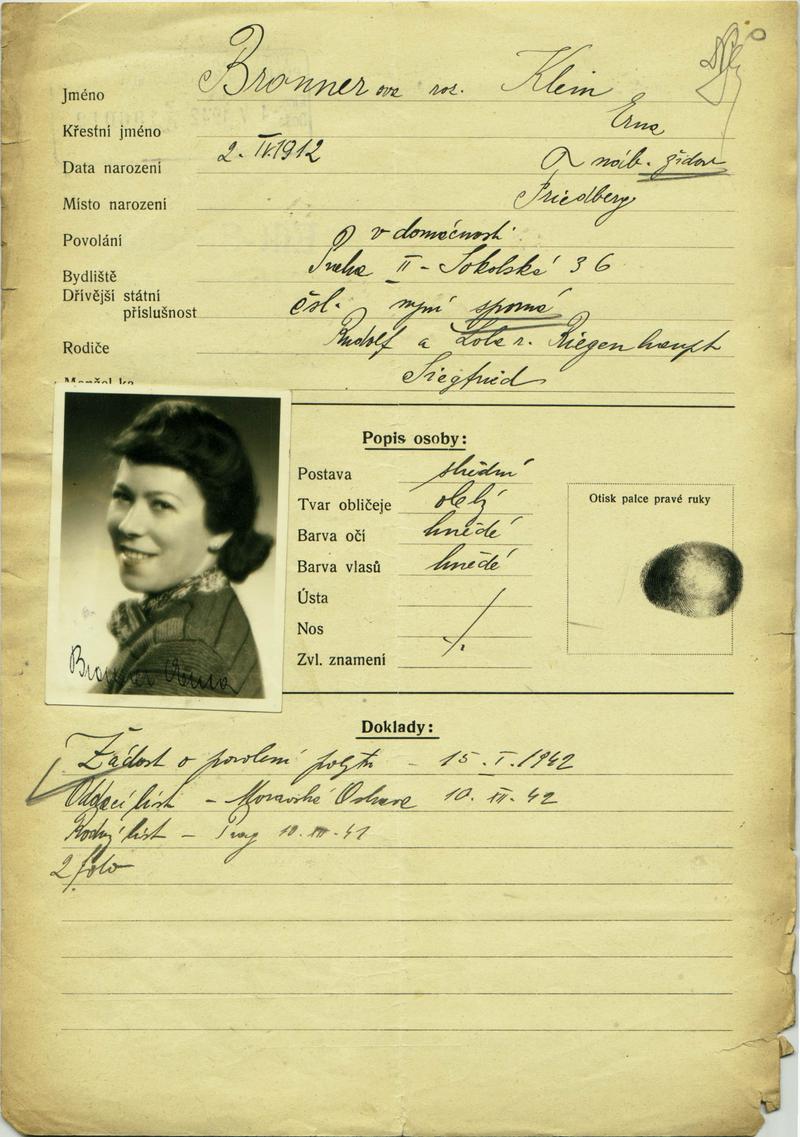 Jméno Bronner ova roz. Klein
Křestní jméno Erna
Data narození 2. IV. 1912 náb. židov
Místo narození Friedberg
Povolání v domácnosti
Bydliště Praha II - Sokolská 36
Dřívější státní
příslušnost čsl. nyní sporná
Rodiče Rudolf a Lola r. Riegenhaupt
Manžel-ka Siegfried
Popis osoby:
Postava střední
Tvar obličeje oblý
Barva očí hnědé
Barva vlasů hnědé
Ústa
Nos
Zvl. znamení
Otisk palce pravé ruky
Bronner Erna
Doklady:
Žádost o povolení pobytu - 15. I. 1942
Oddací list - Moravská Ostrava 10. XII. 42
Rodný list - Prag 10. XII. 41
2 foto